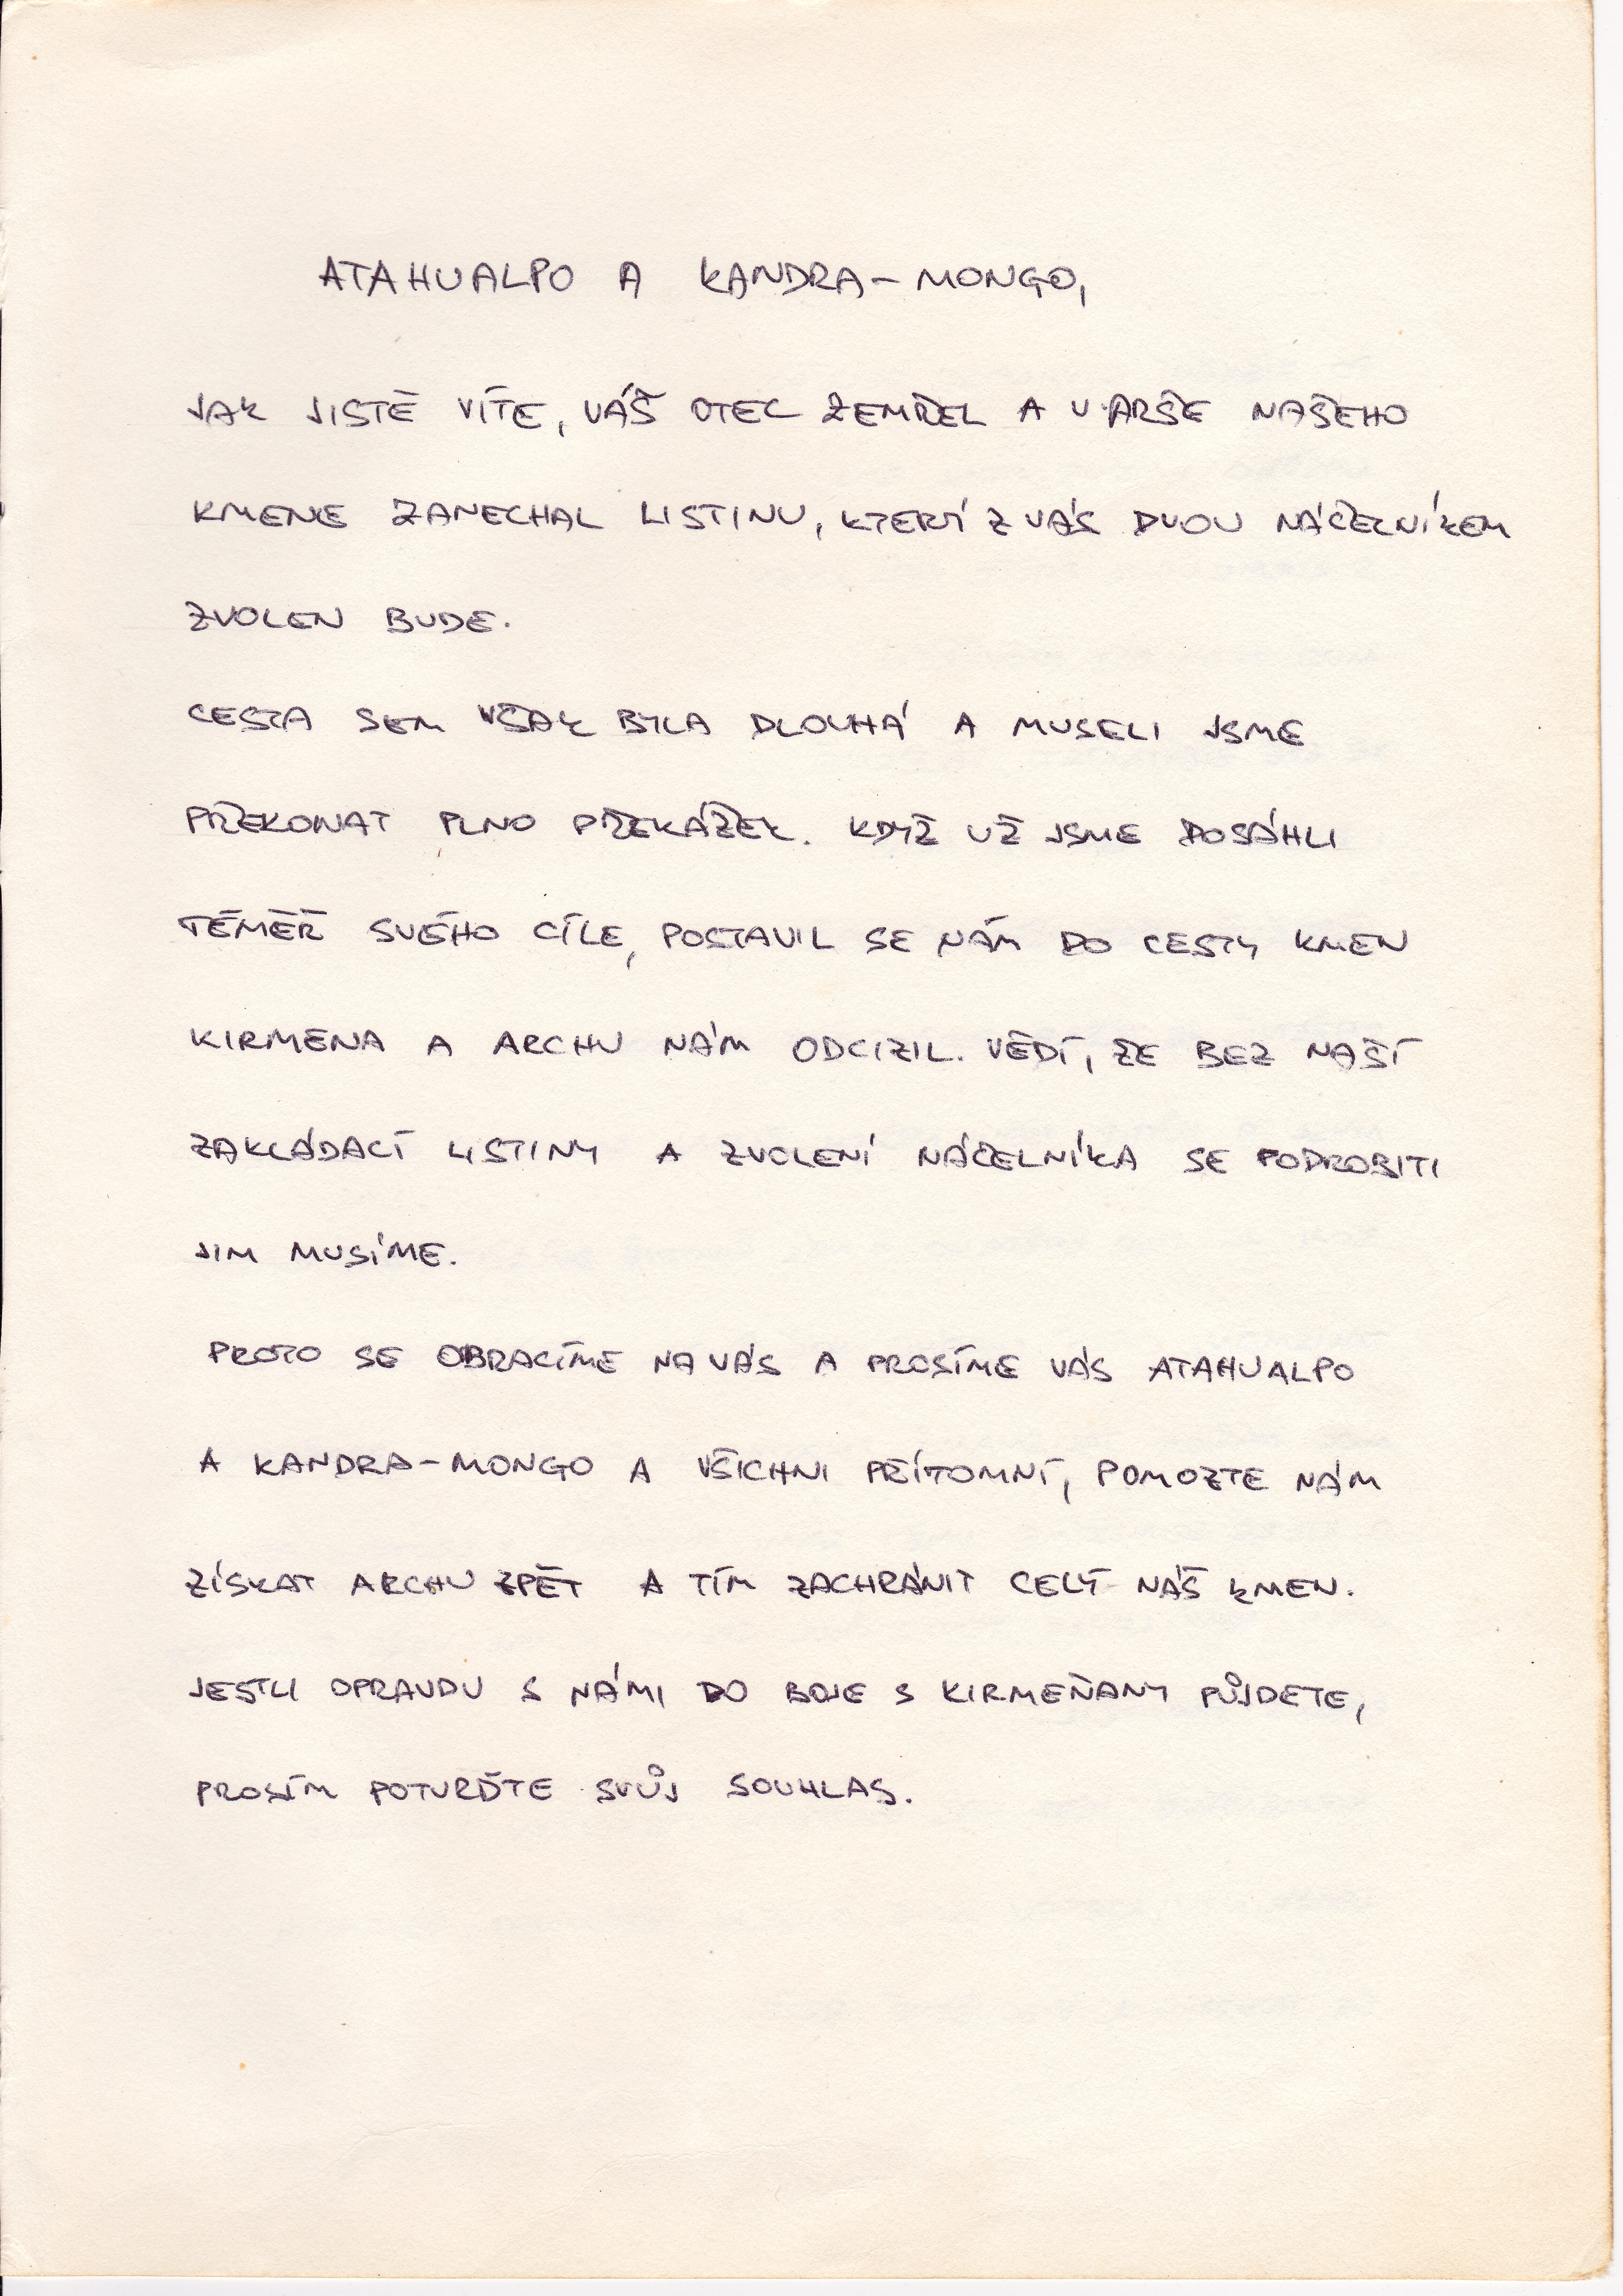 ATAHUALPO A KANDRA-MONGO,
JAK JISTĚ VÍTE, VÁŠ OTEC ZEMŘEL A V ARŠE NAŠEHO
KMENE ZANECHAL LISTINU, KTERÝ Z VÁS DVOU NÁČELNÍKEM
ZVOLEN BUDE.
CESTA SEM VŠAK BYLA DLOUHÁ A MUSELI JSME
PŘEKONAT PLNO PŘEKÁŽEK. KDYŽ UŽ JSME DOSÁHLI
TÉMĚŘ SVÉHO CÍLE, POSTAVIL SE NÁM DO CESTY KMEN
KIRMENA A ARCHU NÁM ODCIZIL. VĚDÍ, ŽE BEZ NAŠÍ
ZAKLÁDACÍ LISTINY A ZVOLENÍ NÁČELNÍKA SE PODROBITI
JIM MUSÍME.
PROTO SE OBRACÍME NA VÁS A PROSÍME VÁS ATAHUALPO
A KANDRA-MONGO A VŠICHNI PŘÍTOMNÍ, POMOZTE NÁM
ZÍSKAT ARCHU ZPĚT A TÍM ZACHRÁNIT CELÝ NÁŠ KMEN.
JESTLI OPRAVDU S NÁMI DO BOJE S KIRMEŇANY PŮJDETE,
PROSÍM POTVRĎTE SVŮJ SOUHLAS.